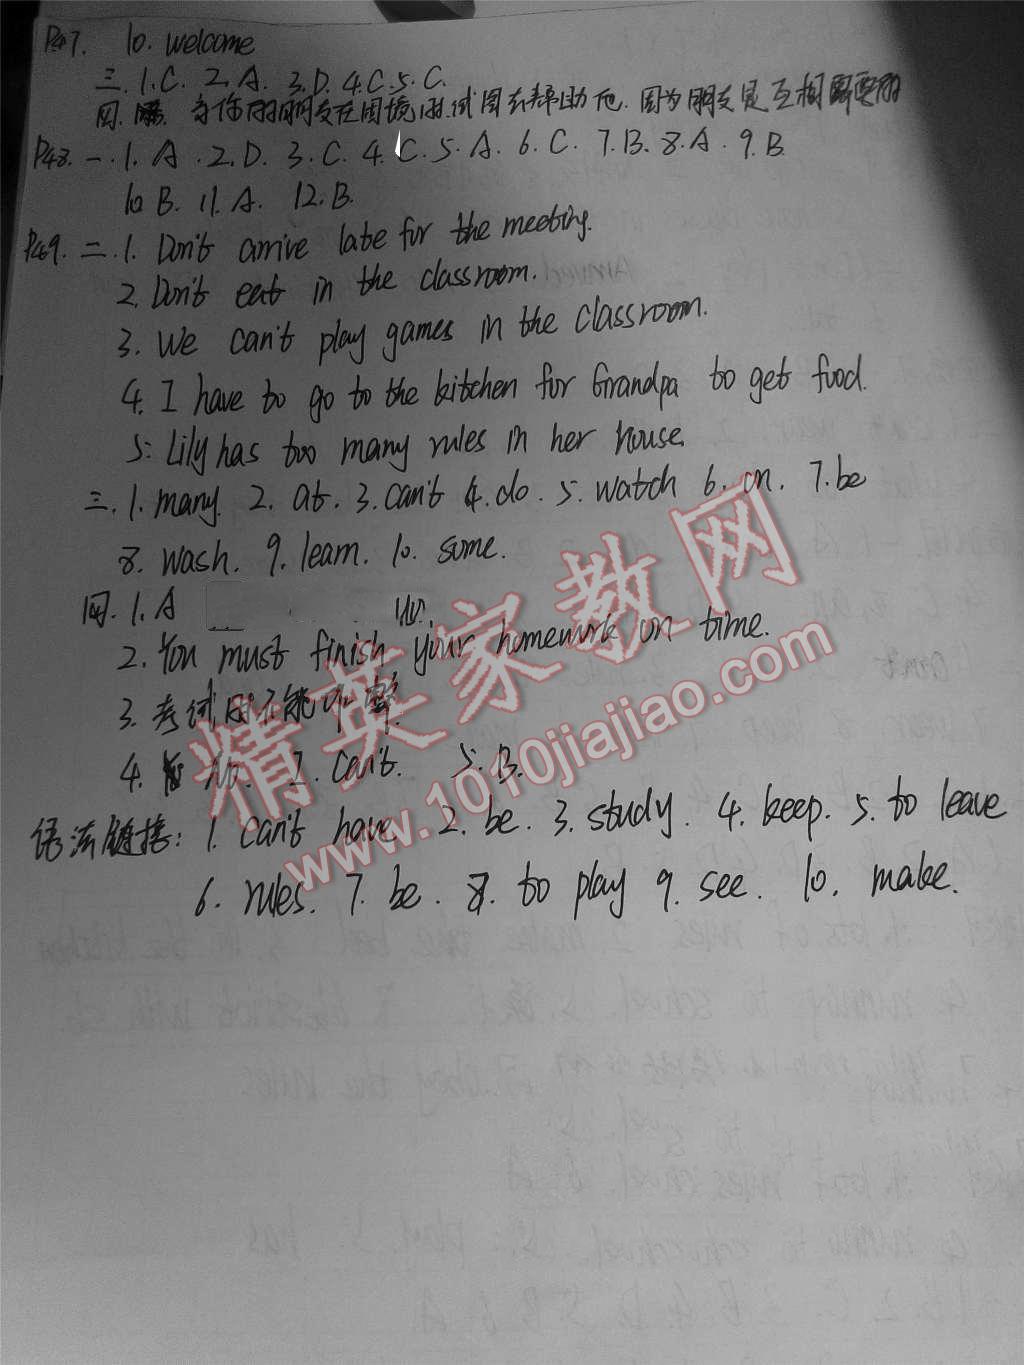 P47. 10. welcome
三.1.C. 2.A. 3.D. 4.C. 5.C.
四. 当你的朋友在困境时.试图去帮助他.因为朋友是互相需要的
P48. 一.1.A.2.D.3.C.4.C.5.A.6.C.7.B.8.A.9.B.
10 B. 11.A. 12.B.
P49. 二.1. Don't arrive late for the meeting.
2. Don't eat in the classroom.
3. We can't play games in the classroom.
4. I have to go to the kitchen for Grandpa to get food.
5: Lily has too many rules in her house.
三.1. many. 2. at. 3. can't 4. do. 5. watch 6. on. 7. be
8. wash. 9. learn. 10. some.
四.1.A
2. You must finish your homework on time.
3. 考试时不能
4. No. I can't. 5.B.
语法链接: 1. can't have 2. be. 3. study. 4. keep. 5. to leave
6. rules. 7. be. 8. to play 9. see. 10. make.
精英家教网
www.1010jiajiao.com